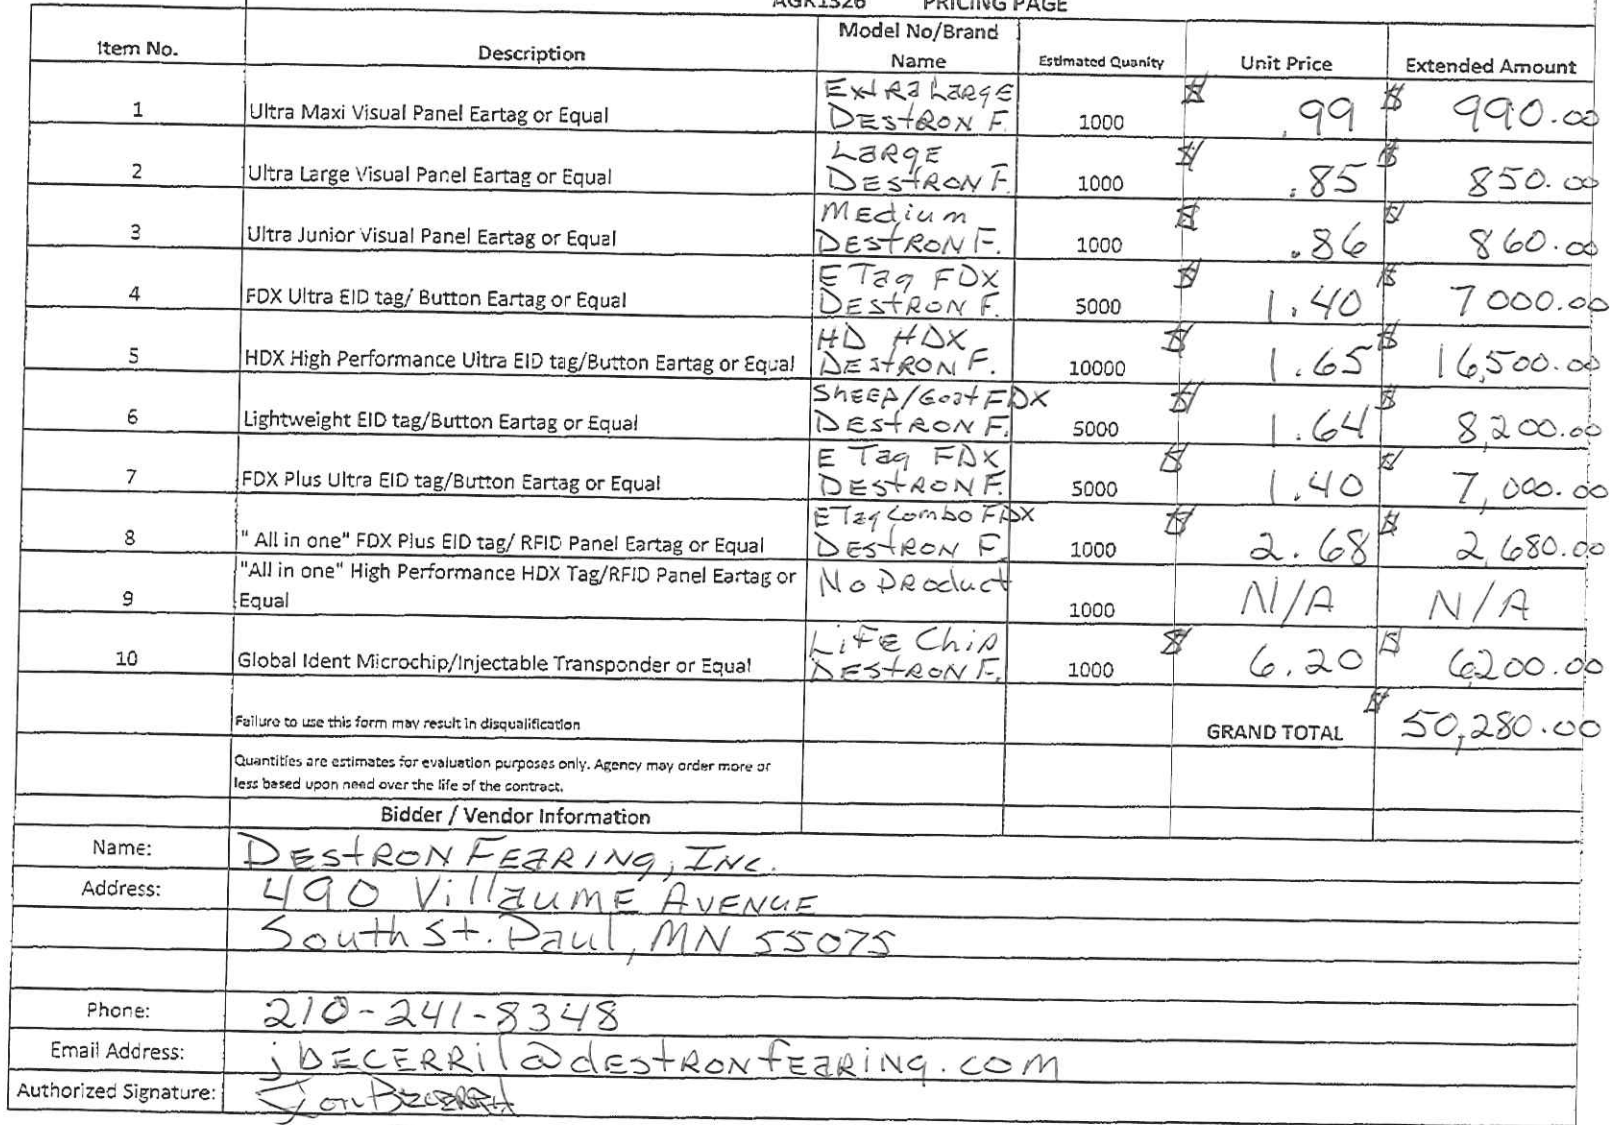 AGR1326 PRICING PAGE
Item No. Description Model No/Brand Name Estimated Quanity Unit Price Extended Amount
1 Ultra Maxi Visual Panel Eartag or Equal Extra Large Destron F. 1000 $ .99 $ 990.00
2 Ultra Large Visual Panel Eartag or Equal Large Destron F. 1000 $ .85 $ 850.00
3 Ultra Junior Visual Panel Eartag or Equal Medium Destron F. 1000 $ .86 $ 860.00
4 FDX Ultra EID tag/ Button Eartag or Equal E Tag FDX Destron F. 5000 $ 1.40 $ 7000.00
5 HDX High Performance Ultra EID tag/Button Eartag or Equal HD HDX Destron F. 10000 $ 1.65 $ 16,500.00
6 Lightweight EID tag/Button Eartag or Equal Sheep/Goat FDX Destron F. 5000 $ 1.64 $ 8,200.00
7 FDX Plus Ultra EID tag/Button Eartag or Equal E Tag FDX Destron F. 5000 $ 1.40 $ 7,000.00
8 " All in one" FDX Plus EID tag/ RFID Panel Eartag or Equal E Tag Combo FDX Destron F. 1000 $ 2.68 $ 2,680.00
9 "All in one" High Performance HDX Tag/RFID Panel Eartag or Equal No Product 1000 N/A N/A
10 Global Ident Microchip/Injectable Transponder or Equal Life Chip Destron F. 1000 $ 6.20 $ 6,200.00
Failure to use this form may result in disqualification GRAND TOTAL $ 50,280.00
Quantities are estimates for evaluation purposes only. Agency may order more or
less based upon need over the life of the contract.
Bidder / Vendor Information
Name: Destron Fearing, Inc.
Address: 490 Villaume Avenue
South St. Paul, MN 55075
Phone: 210-241-8348
Email Address: jbecerril@destronfearing.com
Authorized Signature: